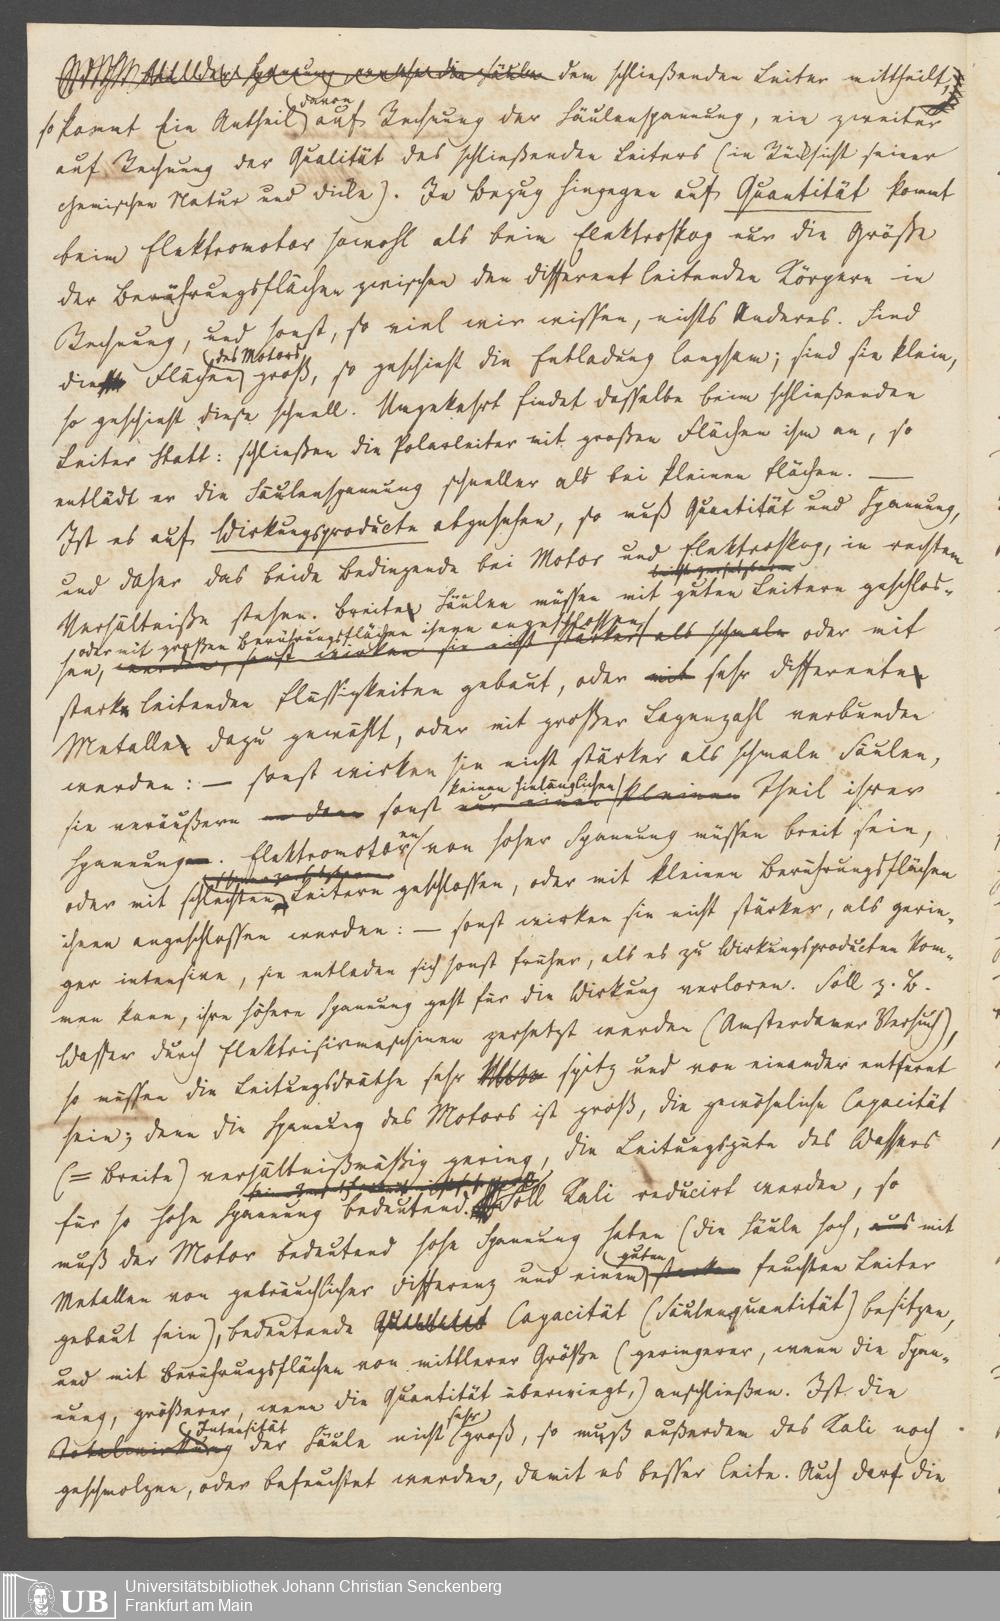 dem schließenden Leiter mittheilt,
so kommt Ein Antheil davon auf Rechnung der Säulenspannung, ein zweiter
auf Rechnung der Qualität des schließenden Leiters (in Rücksicht seiner
chemischen Natur und Dicke). In Bezug hingegen auf Quantität kommt
beim Elektromotor sowohl als beim Elektroskop nur die Größe
der Berührungsflächen zwischen den different leitenden Körpern in
Rechnung, und sonst, so viel wir wissen, nichts Anderes. Sind
die Flächen des Motors groß, so geschieht die Entladung langsam; sind sie klein,
so geschieht diese schnell. Umgekehrt findet dasselbe beim schließenden
Leiter Statt: schließen die Polarleiter mit großen Flächen ihm an, so
entlädt er die Säulenspannung schneller als bei kleinen Flächen. —
Ist es auf Wirkungsproducte abgesehen, so muß Quantität und Spannung,
und daher das beide Bedingende bei Motor und Elektroskop, in rechtem
Verhältniße stehen. Breite Säulen müssen mit guten Leitern geschlos-
sen, oder mit großen Berührungsflächen ihnen angeschlossen,
werden, sonst wirken sie nicht stärker als schmale oder mit
stark leitenden Flüssigkeiten gebaut, oder mit sehr differenten
Metallen dazu gewählt, oder mit großer Lagenzahl verbunden
werden: — sonst wirken sie nicht stärker als schmale Säulen,
sie veräußern sonst keinen hinlänglichen Theil ihrer
Spannung. Elektromotoren von hoher Spannung müssen breit sein,
oder mit schlechten Leitern geschlossen, oder mit kleinen Berührungsflächen
ihnen angeschlossen werden: — sonst wirken sie nicht stärker, als gerin-
ger intensive, sie entladen sich sonst früher, als es zu Wirkungsproducten kom-
men kann, ihre höhere Spannung geht für die Wirkung verloren. Soll z. B.
Wasser durch Elektrisirmaschinen zersetzt werden (Amsterdamer Versuch),
so müssen die Leitungsdräthe sehr spitz und von einander entfernt
sein; denn die Spannung des Motors ist groß, die gewöhnliche Capacität
(= Breite) verhältnißmäßig gering, die Leitungsgüte des Wassers
für so hohe Spannung bedeutend. Soll Kali reducirt werden, so
muß der Motor bedeutend hohe Spannung haben (die Säule hoch, aus mit
Metallen von gebräuchlicher Differenz und einem guten feuchten Leiter
gebaut sein), bedeutende Quantität Capacität (Säulenquantität) besitzen,
und mit Berührungsflächen von mittlerer Größe (geringerer, wenn die Span-
nung, größerer, wenn die Quantität überwiegt,) anschließen. Ist die
Totalwirkung Intensität der Säule nicht sehr groß, so muß außerdem das Kali noch
geschmolzen, oder befeuchtet werden, damit es besser leite. Auch darf die
UB
Universitätsbibliothek Johann Christian Senckenberg
Frankfurt am Main